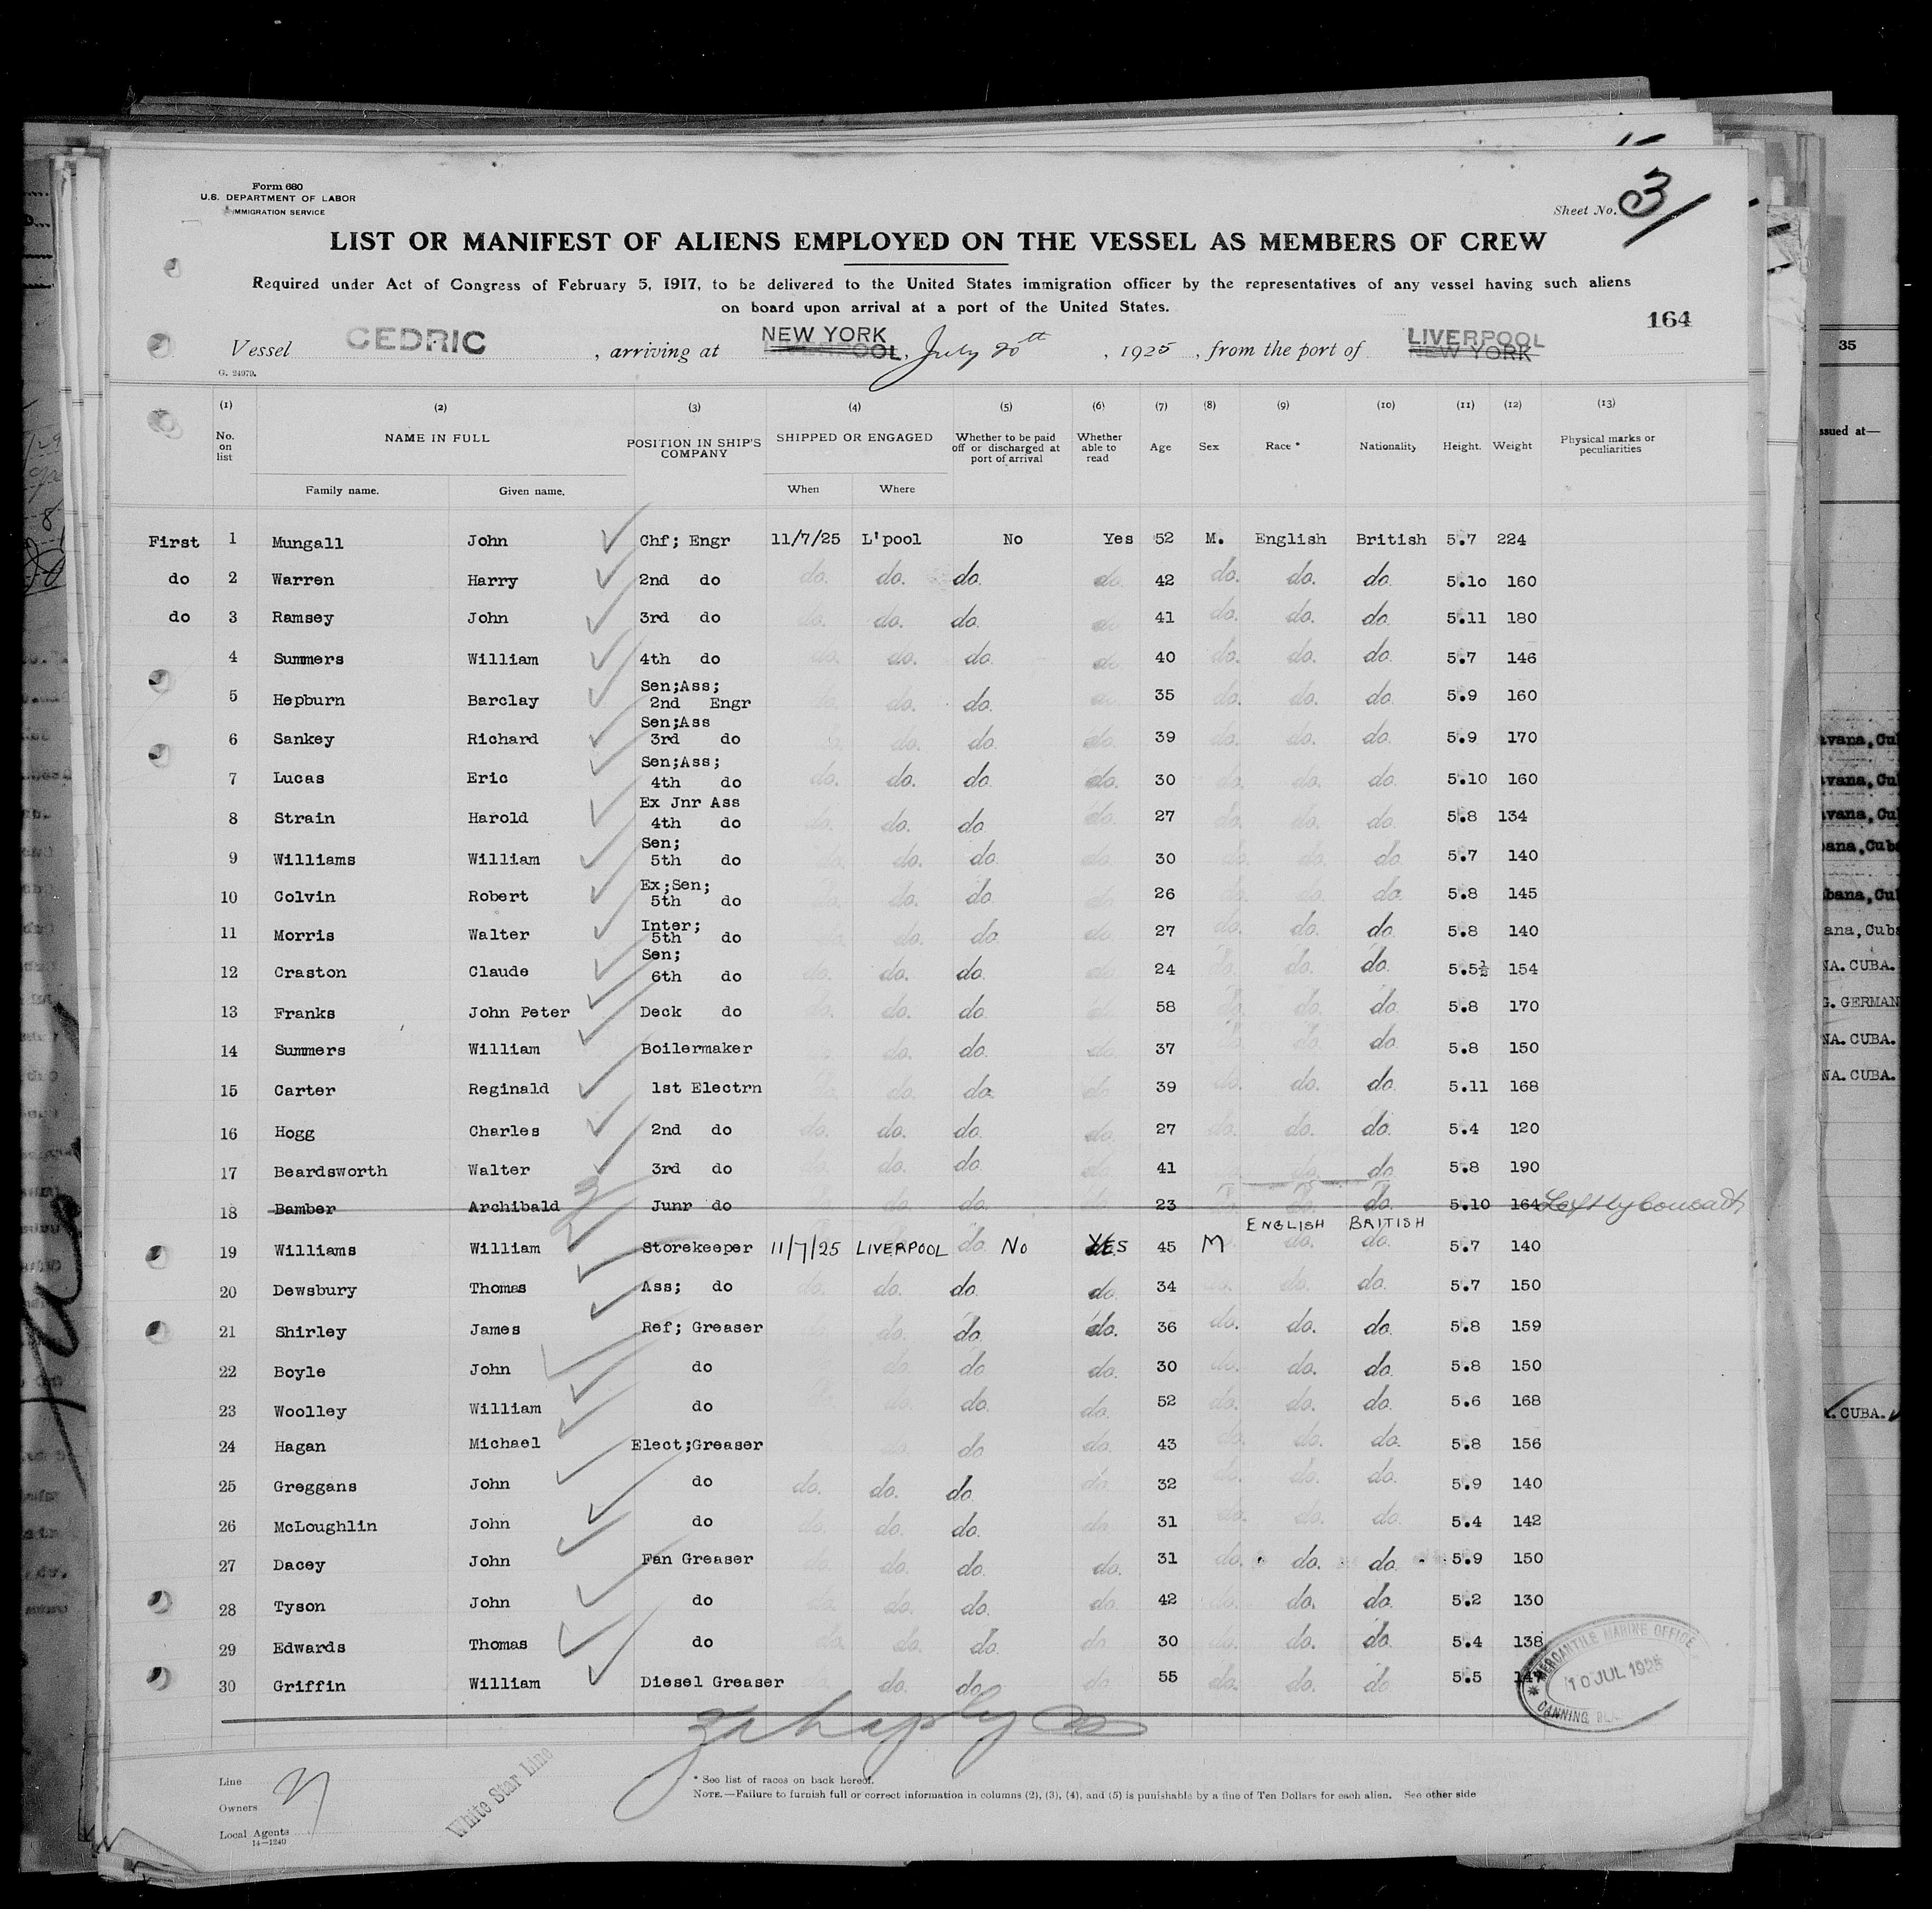 Form 680
U.S. DEPARTMENT OF LABOR
IMMIGRATION SERVICE
Sheet No. 3
LIST OR MANIFEST OF ALIENS EMPLOYED ON THE VESSEL AS MEMBERS OF CREW
Required under Act of Congress of February 5, 1917, to be delivered to the United States immigration officer by the representatives of any vessel having such aliens
on board upon arrival at a port of the United States.
164
Vessel CEDRIC, arriving at NEW YORK LIVERPOOL, July 20th, 1925, from the port of LIVERPOOL NEW YORK
G. 24979.
(1) (2) (3) (4) (5) (6) (7) (8) (9) (10) (11) (12) (13)
No. on list NAME IN FULL POSITION IN SHIP'S COMPANY SHIPPED OR ENGAGED Whether to be paid off or discharged at port of arrival Whether able to read Age Sex Race * Nationality Height. Weight Physical marks or peculiarities
Family name. Given name. When Where
First 1 Mungall John Chf; Engr 11/7/25 L'pool No Yes 52 M. English British 5.7 224
do 2 Warren Harry 2nd do do. do. do. do. 42 do. do. do. 5.10 160
do 3 Ramsey John 3rd do do. do. do. do. 41 do. do. do. 5.11 180
4 Summers William 4th do do. do. do. do. 40 do. do. do. 5.7 146
5 Hepburn Barclay Sen;Ass; 2nd Engr do. do. do. do. 35 do. do. do. 5.9 160
6 Sankey Richard Sen;Ass 3rd do do. do. do. do. 39 do. do. do. 5.9 170
7 Lucas Eric Sen;Ass; 4th do do. do. do. do. 30 do. do. do. 5.10 160
8 Strain Harold Ex Jnr Ass 4th do do. do. do. do. 27 do. do. do. 5.8 134
9 Williams William Sen; 5th do do. do. do. do. 30 do. do. do. 5.7 140
10 Colvin Robert Ex;Sen; 5th do do. do. do. do. 26 do. do. do. 5.8 145
11 Morris Walter Inter; 5th do do. do. do. do. 27 do. do. do. 5.8 140
12 Craston Claude Sen; 6th do do. do. do. do. 24 do. do. do. 5.5½ 154
13 Franks John Peter Deck do do. do. do. do. 58 do. do. do. 5.8 170
14 Summers William Boilermaker do. do. do. do. 37 do. do. do. 5.8 150
15 Carter Reginald 1st Electrn do. do. do. do. 39 do. do. do. 5.11 168
16 Hogg Charles 2nd do do. do. do. do. 27 do. do. do. 5.4 120
17 Beardsworth Walter 3rd do do. do. do. do. 41 do. do. do. 5.8 190
18 Bamber Archibald Junr do do. do. do. do. 23 do. do. do. 5.10 164
ENGLISH BRITISH
19 Williams William Storekeeper 11/7/25 LIVERPOOL do. No YES 45 M do. do. 5.7 140
20 Dewsbury Thomas Ass; do do. do. do. do. 34 do. do. do. 5.7 150
21 Shirley James Ref; Greaser do. do. do. do. 36 do. do. do. 5.8 159
22 Boyle John do do. do. do. 30 do. do. do. 5.8 150
23 Woolley William do do. do. do. 52 do. do. do. 5.6 168
24 Hagan Michael Elect;Greaser do. do. do. 43 do. do. do. 5.8 156
25 Greggans John do do. do. do. do. 32 do. do. do. 5.9 140
26 McLoughlin John do do. do. do. do. 31 do. do. do. 5.4 142
27 Dacey John Fan Greaser do. do. do. do. 31 do. do. do. 5.9 150
28 Tyson John do do. do. do. do. 42 do. do. do. 5.2 130
29 Edwards Thomas do do. do. do. do. 30 do. do. do. 5.4 138
30 Griffin William Diesel Greaser do. do. do. do. 55 do. do. do. 5.5
MERCANTILE MARINE OFFICE
10 JUL 1925
CANNING
Line
Owners
Local Agents
14—1240
White Star Line
* See list of races on back hereof.
NOTE.—Failure to furnish full or correct information in columns (2), (3), (4), and (5) is punishable by a fine of Ten Dollars for each alien. See other side
35
ssued at—
avana,Cu
avana,Cu
avana,Cu
bana,Cuba
bana,Cu
ana,Cuba
NA. CUBA.
G. GERMAN
NA. CUBA.
NA. CUBA.
. CUBA.